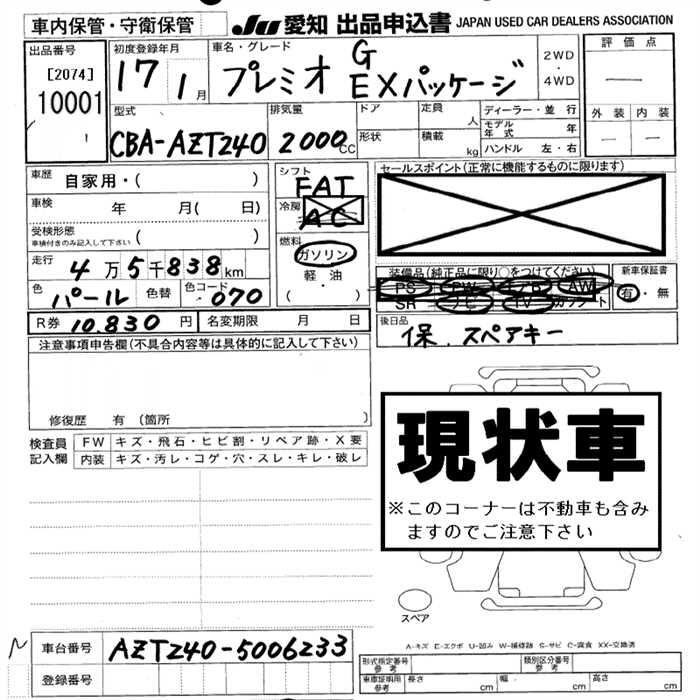 車内保管・守衛保管
JU 愛知 出品申込書 JAPAN USED CAR DEALERS ASSOCIATION
出品番号
[2074]
10001
初度登録年月
17 1月
車名・グレード
プレミオ G EXパッケージ
2WD
・
4WD
評価点
—
外装 内装
— —
型式
CBA-AZT240
排気量
2000CC
ドア
形状
定員
人
積載
kg
ディーラー・並行
モデル年式 年
ハンドル 左・右
車歴 自家用・( )
車検 年 月( 日)
受検形態
車検付きのみ記入して下さい ( )
走行 4万5千838km
色 パール 色替 色コード 070
シフト
FAT
冷房
AC
燃料
ガソリン
軽・油
( )
セールスポイント(正常に機能するものに限ります)
装備品(純正品に限り○をつけてください)
PS PW エアB AW
SR ナビ TV カワシート
新車保証書
有・無
R券 10,830円 名変期限 月 日
後日品
保、スペアキー
注意事項申告欄(不具合内容等は具体的に記入して下さい)
修復歴 有(箇所 )
検査員記入欄
FW キズ・飛石・ヒビ割・リペア跡・X要
内装 キズ・汚レ・コゲ・穴・スレ・キレ・破レ
現状車
※このコーナーは不動車も含み
ますのでご注意下さい
スペア
A-キズ E-エクボ U-凹み W-補修跡 S-サビ C-腐食 XX-交換済
車台番号 AZT240-5006233
登録番号
形式指定番号
参考
類別区分番号
参考
車庫証明用
参考
長さ cm 幅 cm 高さ cm